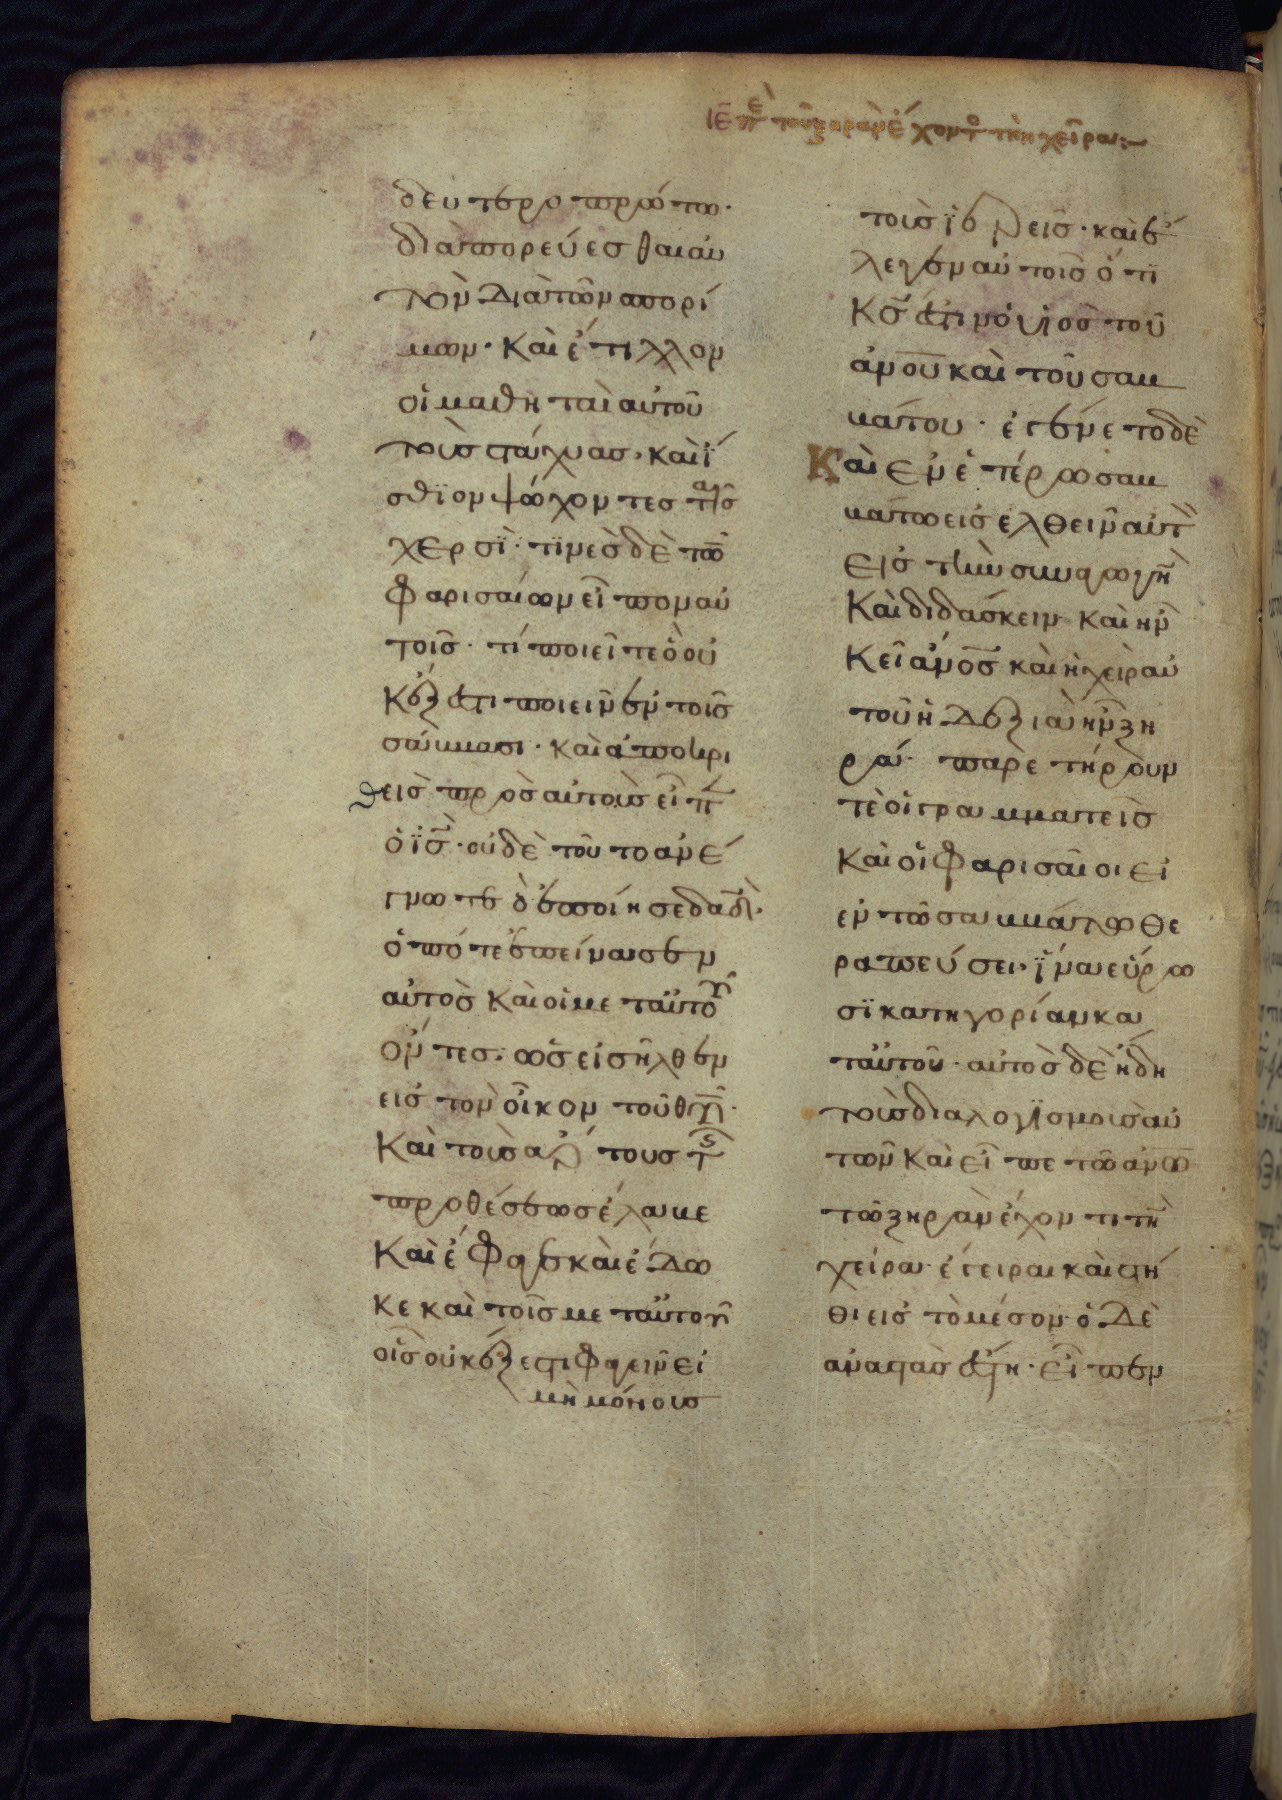 ΙΕ πε τοῦ ξηρὰν ἔχοντο τὴν χεῖρα:~
δευτεροπρώτω·
διαπορεύεσθαι αὐ
τὸν διὰ τῶν σπορί
μων· καὶ ἔτιλλον
οἱ μαθηταὶ αὐτοῦ
τοὺς στάχυας· καὶ ἴ
σθϊον ψώχοντες ταῖς
χερσὶ· τϊνὲς δὲ τῶν
φαρισαίων εἶπον αὐ
τοῖς· τί ποιεῖτε ὃ οὐ
κἔξεστι ποιεῖν ἐν τοῖς
σάββασι· καὶ ἀποκρι
θεὶς πρὸς αὐτοὺς εἶπεν
ὁ ϊς· οὐδὲ τοῦτο ἀνέ
γνωτε ὃ ἐποίησε δαδ·
ὁπότε ἐπείνασεν
αὐτὸς καὶ οἱ μεταὐτοῦ
ὄντες· ὡς εἰσῆλθεν
εἰς τὸν οἶκον τοῦ θυ·
καὶ τοὺς ἄρτους τῆς
προθέσεως ἔλαβε
καὶ ἔφαγε καὶ ἔδω
κε καὶ τοῖς μεταὐτοῦ
οἷς οὐκ ἔξεστι φαγεῖν εἰ
μὴ μόνους
τοὺς ϊερεῖς· καὶ ἔ
λεγεν αὐτοῖς ὅτϊ
κς ἐστιν ὁ υἱὸς τοῦ
ανου καὶ τοῦ σαβ
βάτου· ἐγένετο δὲ
Καὶ ἐν ἑτέρω σαβ
βάτω εἰσελθεῖν αὐτὸν
εἰς τὴν συναγωγὴν
καὶ διδάσκειν· καὶ ἦν ἐ
κεῖ ανος καὶ ἡ χεὶρ αὐ
τοῦ ἡ δεξιὰ ἦν ξη
ρά· παρετήρουν
τὲ οἱ γραμματεῖς
καὶ οἱ φαρισαῖοι εἰ
ἐν τῶ σαββάτω θε
ραπεύσει· ἵνα εὕρω
σϊ κατηγορίαν κα
ταὐτοῦ· αὐτὸς δὲ ἤδη
τοὺς διαλογϊσμοὺς αὐ
τῶν καὶ εἶπε τῶ ανω
τῶ ξηρὰν ἔχοντι τὴν
χεῖρα· ἔγειραι καὶ στῆ
θι εἰς τὸ μέσον· ὁ δὲ
ἀναστὰς ἔστη· εἶπεν